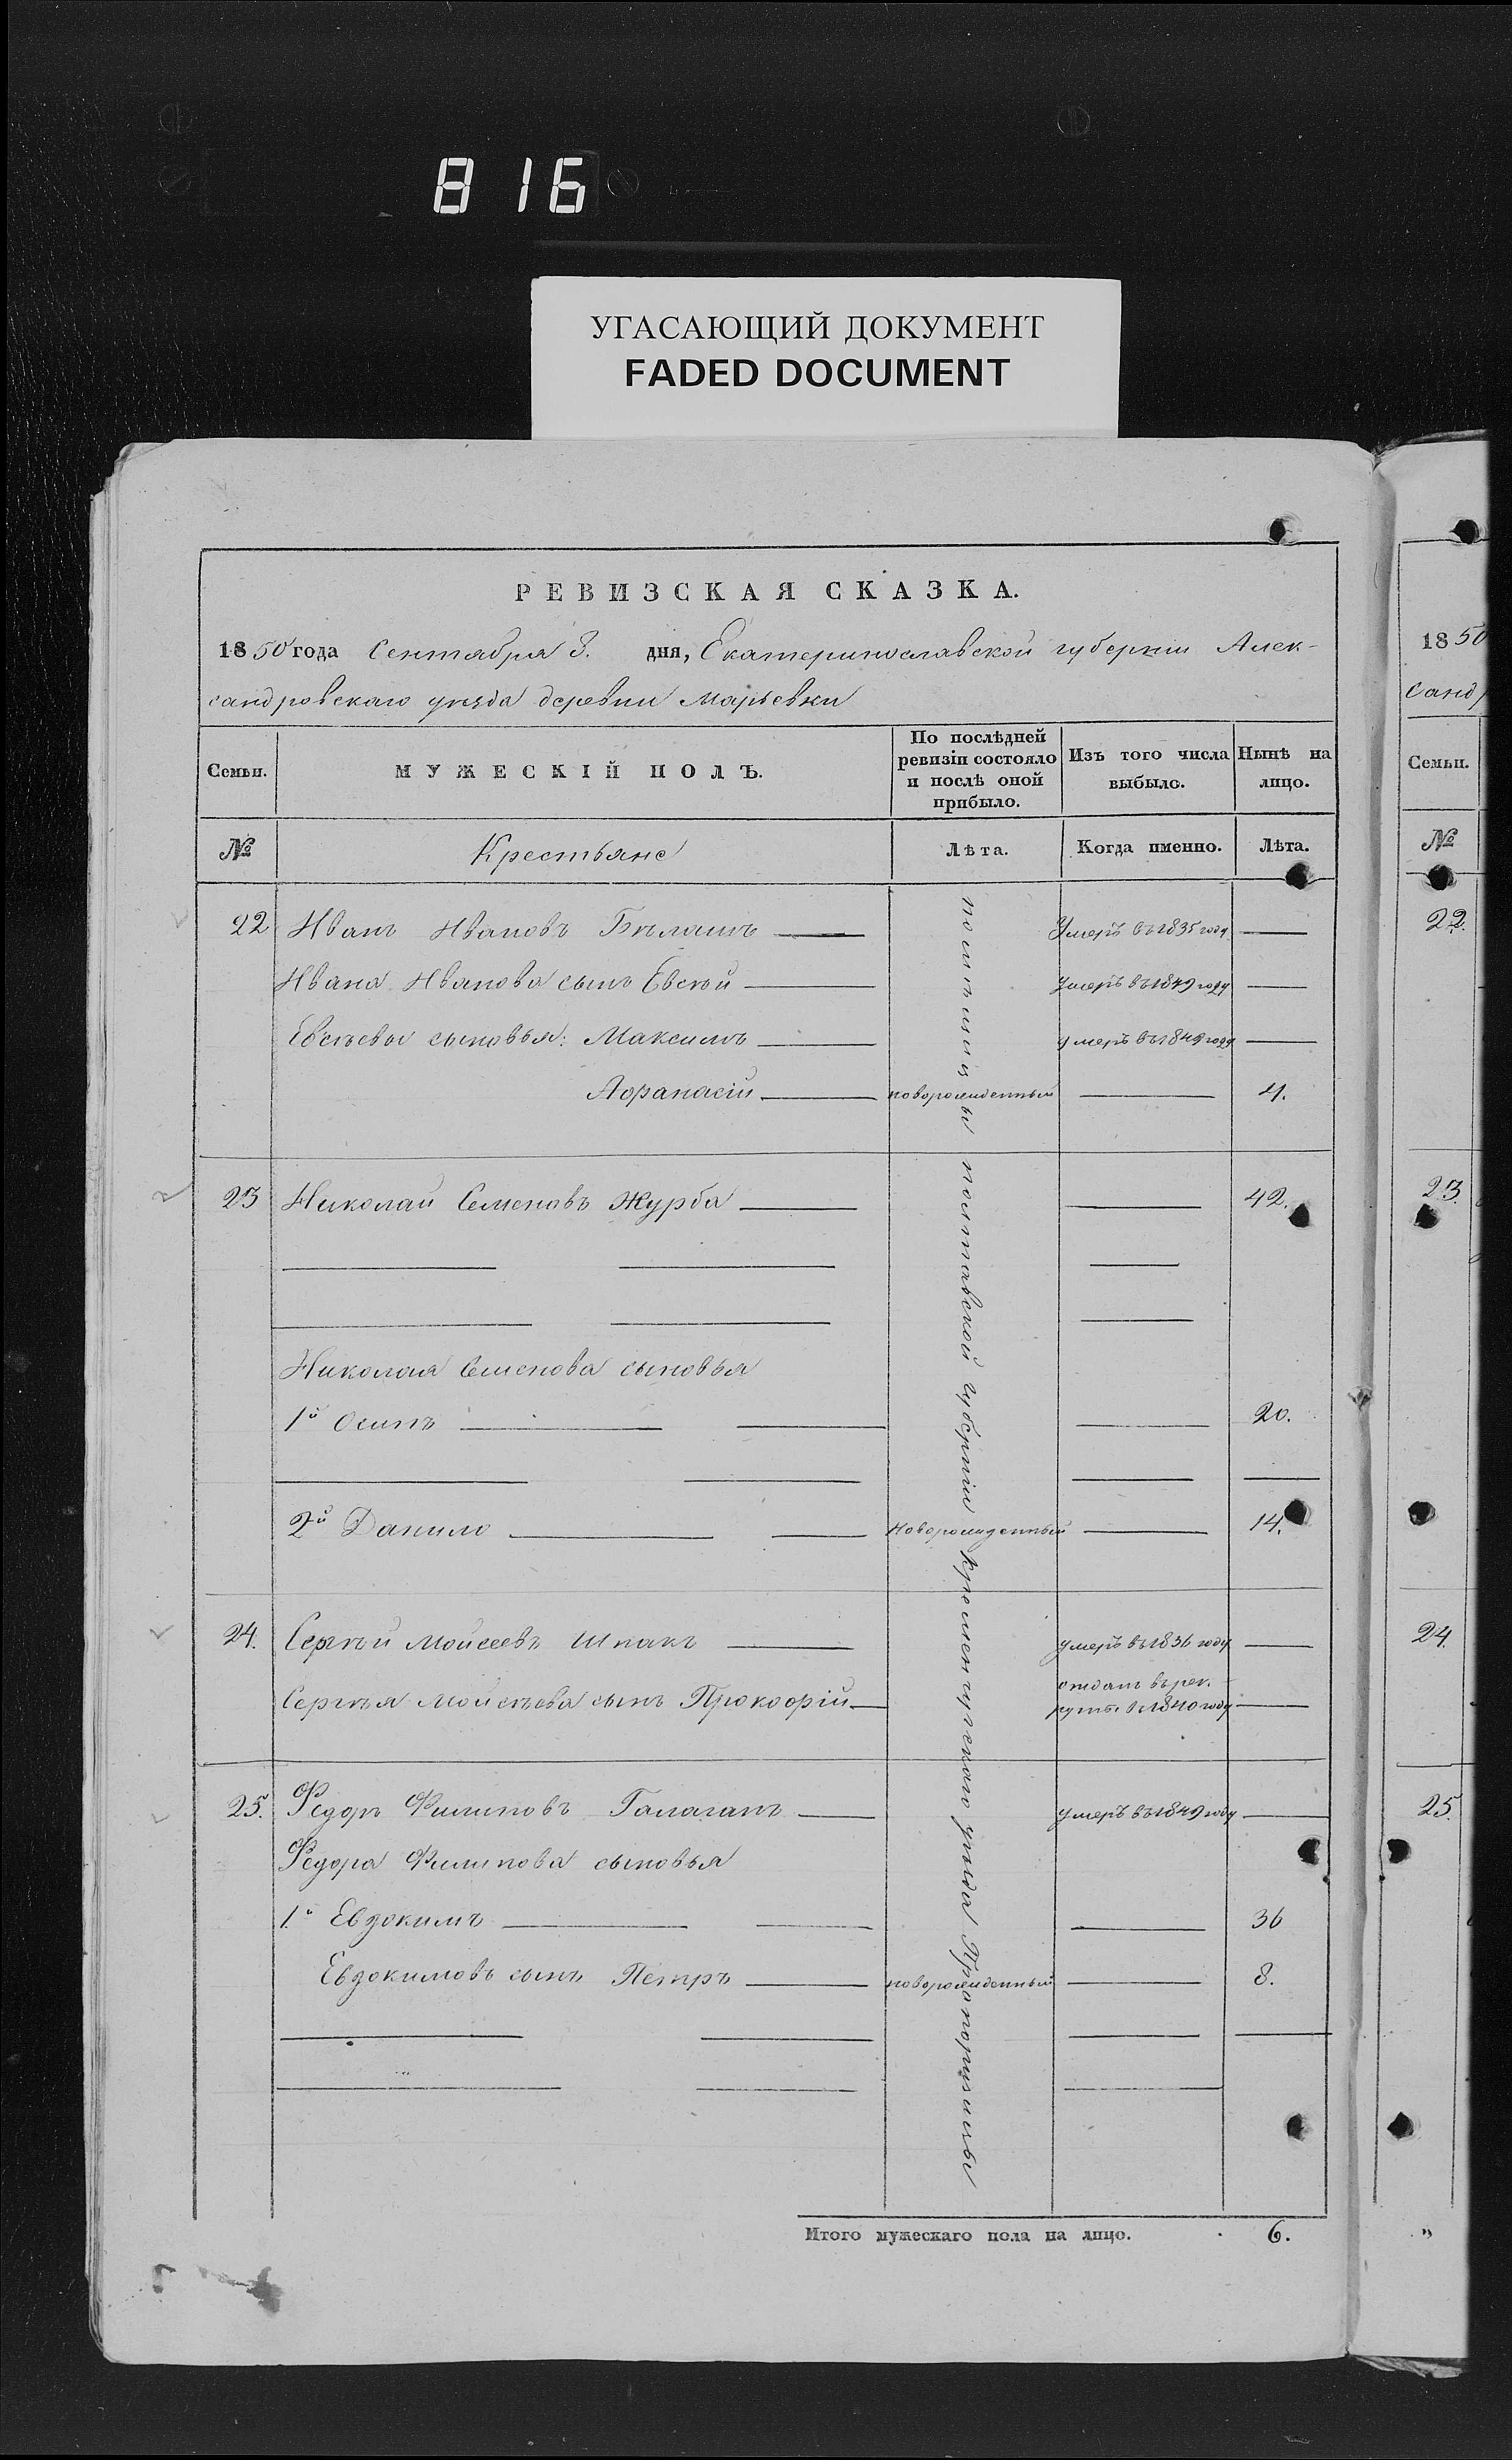 816
УГАСАЮЩИЙ ДОКУМЕНТ
FADED DOCUMENT
РЕВИЗСКАЯ СКАЗКА.
1850 года Сентября 8. дня, Екатеринославской губернии Алек-
сандровскаго уезда деревни Марьевки
Семьи.
МУЖЕСКІЙ ПОЛЪ.
По послѣдней ревизіи состояло и послѣ оной прибыло.
Изъ того числа выбыло.
Нынѣ на лицо.
№ Крестьяне Лѣта. Когда именно. Лѣта.
22 Иванъ Ивановъ Бѣлашъ Умеръ въ 1835 году
Ивана Иванова сынъ Евсѣй Умеръ въ 1849 году
Евсѣевы сыновья: Максимъ умеръ въ 1849 году
Афанасій новорожденный 4.
23 Николай Семеновъ Журба 42.
Николая Семенова сыновья
1й Осипъ 20.
2й Данило новорожденный 14.
24. Сергѣй Мойсеевъ Шпакъ умеръ въ 1836 году
Сергѣя Мойсѣева сынъ Прокофій отданъ въ рек-
руты въ 1840 году
25. Федоръ Филиповъ Галаганъ умеръ въ 1849 году
Федора Филипова сыновья
1й Евдокимъ 36
Евдокимовъ сынъ Петръ новорожденный 8.
полтавской губерніи Кременчугскаго уѣзда
Итого мужескаго пола на лицо. 6.
1850
санд
Семьи.
№
22.
23.
24.
25.
"